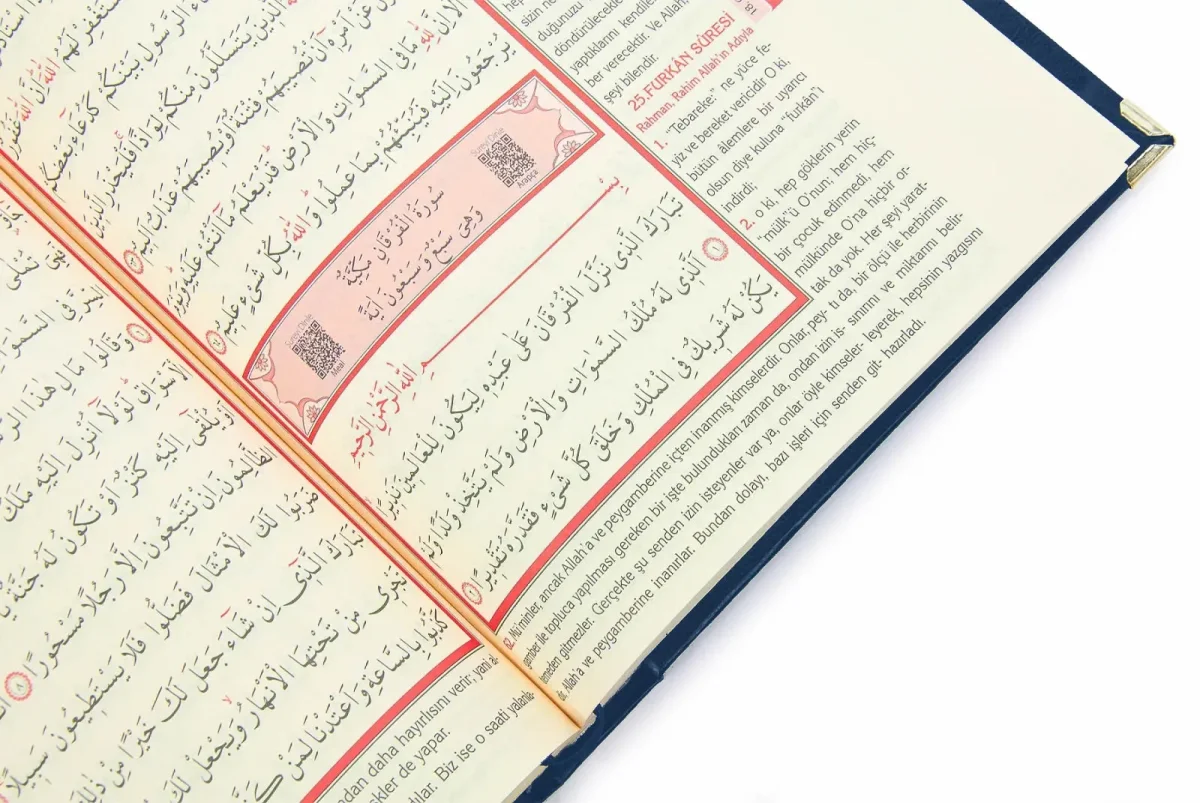 الَّذِينَ يَتَسَلَّلُونَ مِنْكُمْ لِوَاذًا فَلْيَحْذَرِ الَّذِينَ
عَنْ اَمْرِه۪ٓ اَنْ تُص۪يبَهُمْ فِتْنَةٌ اَوْ يُص۪يبَهُمْ عَذَابٌ اَل۪يمٌ ٦٣
اَلَٓا اِنَّ لِلّٰهِ مَا فِي السَّمٰوَاتِ وَالْاَرْضِ قَدْ يَعْلَمُ مَٓا اَنْتُمْ عَلَيْهِ وَيَوْمَ
يُرْجَعُونَ اِلَيْهِ فَيُنَبِّئُهُمْ بِمَا عَمِلُوا وَاللّٰهُ بِكُلِّ شَيْءٍ عَل۪يمٌ ٦٤
Sureyi Dinle
Arapça
سُورَةُ الْفُرْقَانِ مَكِّيَّةٌ
وَهِيَ سَبْعٌ وَسَبْعُونَ اٰيَةً
Sureyi Dinle
Meal
بِسْمِ اللّٰهِ الرَّحْمٰنِ الرَّح۪يمِ
تَبَارَكَ الَّذ۪ي نَزَّلَ الْفُرْقَانَ عَلٰى عَبْدِه۪ لِيَكُونَ لِلْعَالَم۪ينَ نَذ۪يرًا
١ اَلَّذ۪ي لَهُ مُلْكُ السَّمٰوَاتِ وَالْاَرْضِ وَلَمْ يَتَّخِذْ وَلَدًا وَلَمْ
يَكُنْ لَهُ شَر۪يكٌ فِي الْمُلْكِ وَخَلَقَ كُلَّ شَيْءٍ فَقَدَّرَهُ تَقْد۪يرًا ٢
döndürülecekle
yaptıklarını kendiler
ber verecektir. Ve Allah,
şeyi bilendir.
25.FURKÂN SÛRESİ
Rahman, Rahim Allah'ın Adıyla
1. "Tebareke:" ne yüce fe-
yiz ve bereket vericidir O ki,
bütün âlemlere bir uyarıcı
olsun diye kuluna "furkân"ı
indirdi;
2. o ki, hep göklerin yerin
"mülk"ü O'nun; hem hiç-
bir çocuk edinmedi, hem
mülkünde O'na hiçbir or-
tak da yok. Her şeyi yarat-
tı da, bir ölçü ile herbirinin
sınırını ve miktarını belir-
leyerek, hepsinin yazgısını
hazırladı.
62. Mü'minler, ancak Allah'a ve peygamberine içten inanmış kimselerdir. Onlar, pey-
gamber ile topluca yapılması gereken bir işte bulundukları zaman da, ondan izin is-
temeden gitmezler. Gerçekte şu senden izin isteyenler var ya, onlar öyle kimseler-
dir, Allah'a ve peygamberine inanırlar. Bundan dolayı, bazı işleri için senden git-
وَقَالُوا مَالِ هٰذَا
لَوْلَٓا اُنْزِلَ اِلَيْهِ مَلَكٌ
اَوْ يُلْقٰٓى اِلَيْهِ كَنْزٌ اَوْ تَكُونُ لَهُ جَنَّةٌ
الظَّالِمُونَ اِنْ تَتَّبِعُونَ اِلَّا رَجُلًا مَسْحُورًا ٨
ضَرَبُوا لَكَ الْاَمْثَالَ فَضَلُّوا فَلَا يَسْتَط۪يعُونَ سَب۪يلًا
تَبَارَكَ الَّذ۪ٓي اِنْ شَٓاءَ جَعَلَ لَكَ خَيْرًا مِنْ ذٰلِكَ
تَجْر۪ي مِنْ تَحْتِهَا الْاَنْهَارُ وَيَجْعَلْ لَكَ
كَذَّبُوا بِالسَّاعَةِ وَاَعْتَدْنَا لِمَنْ
ndan daha hayırlısını verir; yani al-
şkler de yapar.
dılar. Biz ise o saati yalanla-